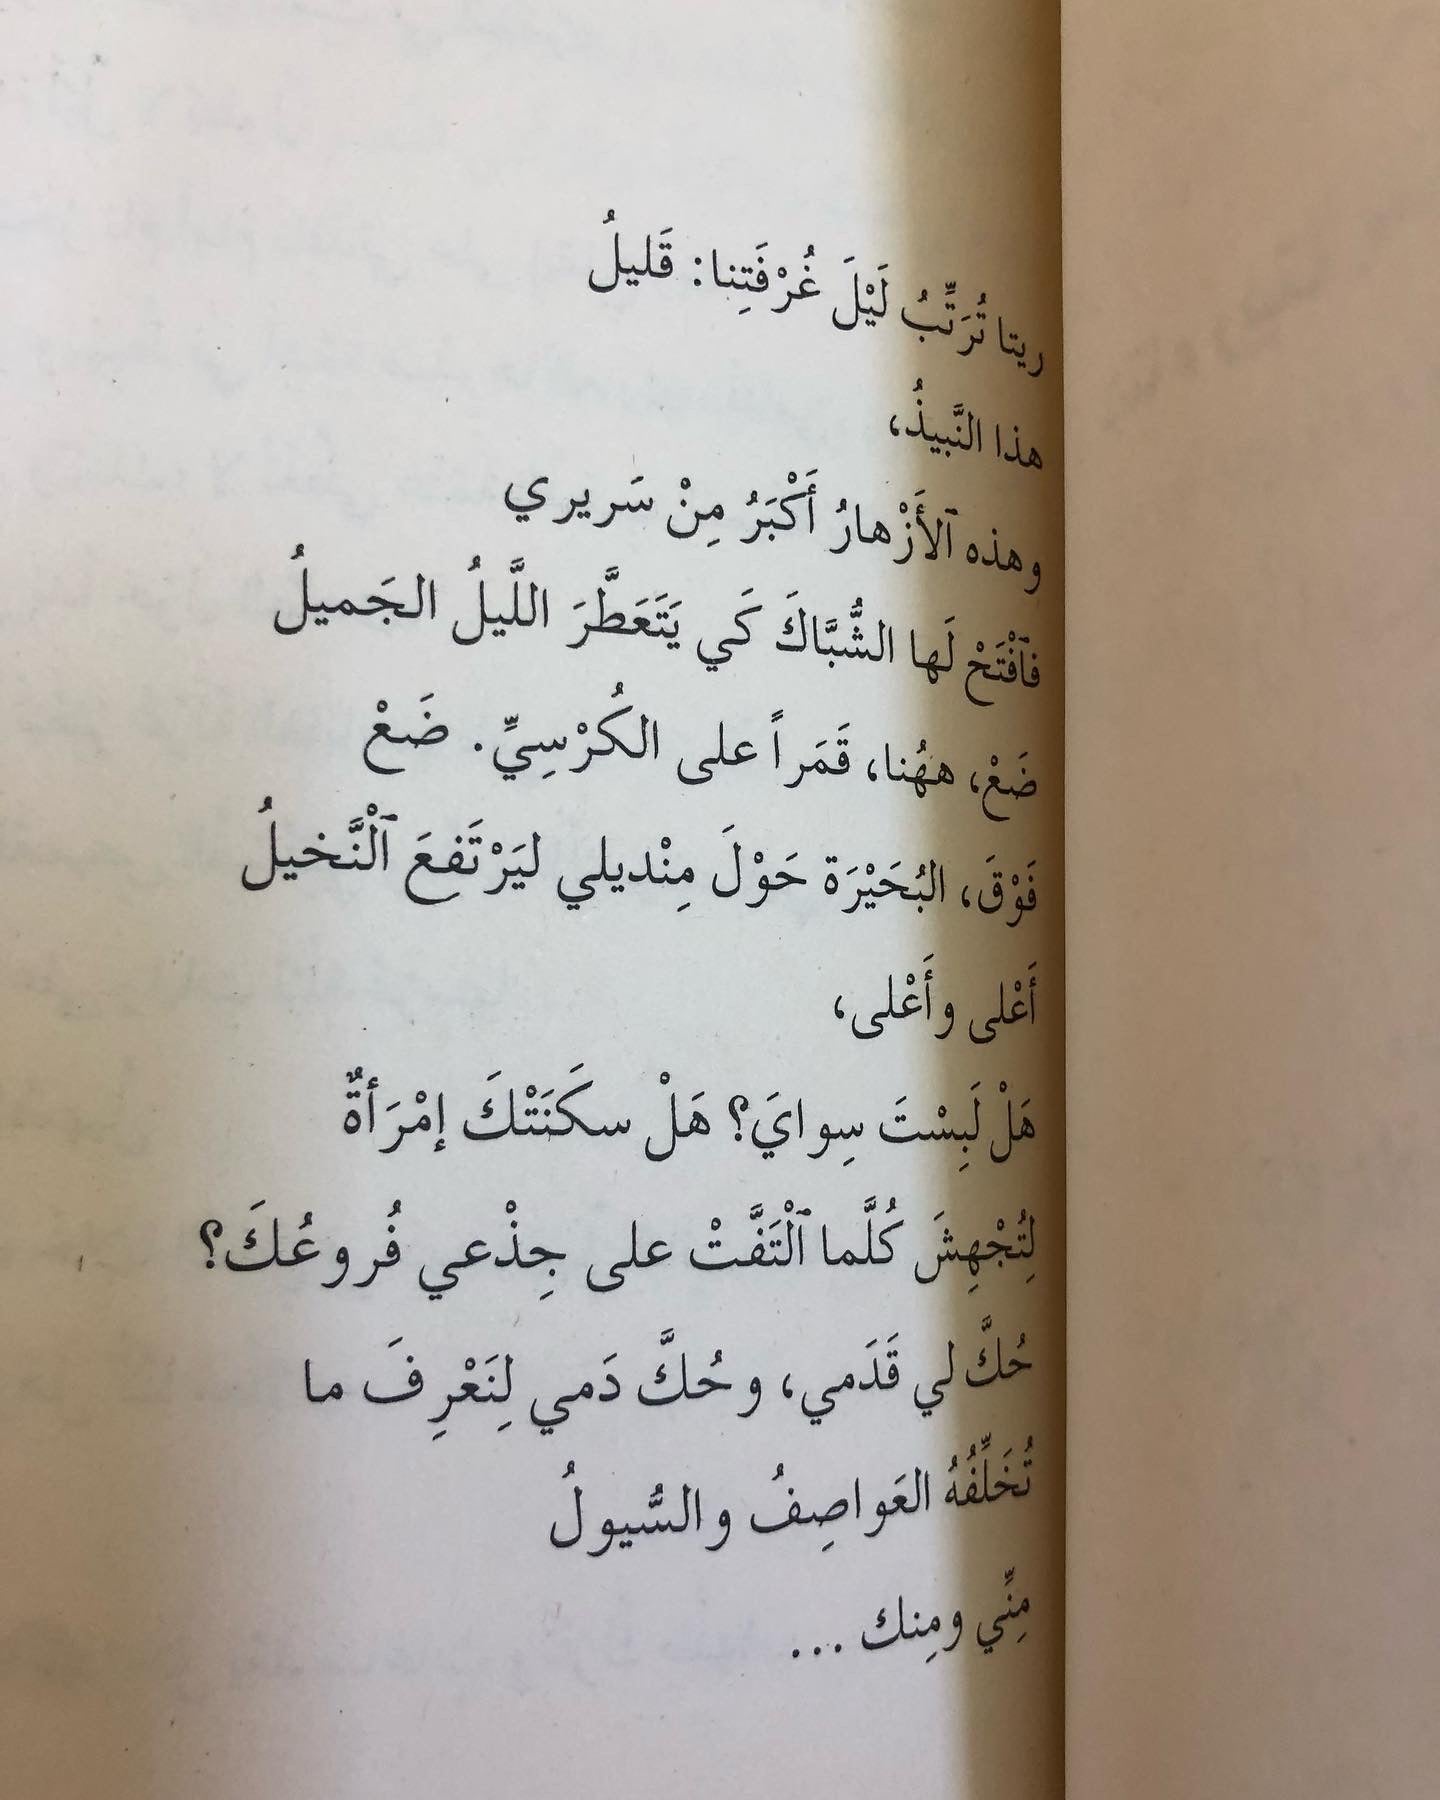 ريتا تُرَتِّبُ لَيْلَ غُرْفَتِنا: قَليلُ
هذا النَّبيذُ،
وهذه ٱلأَزْهارُ أَكْبَرُ مِنْ سَريري
فٱفْتَحْ لَها الشُّبَّاكَ كَي يَتَعَطَّرَ اللَّيلُ الجَميلُ
ضَعْ، ههُنا، قَمَراً على الكُرْسِيِّ. ضَعْ
فَوْقَ، البُحَيْرَة حَوْلَ مِنْديلي ليَرْتَفعَ ٱلْنَّخيلُ
أَعْلى وأَعْلى،
هَلْ لَبِسْتَ سِوايَ؟ هَلْ سكَنَتْكَ إمْرَأةٌ
لِتُجْهِشَ كُلَّما ٱلْتَفَّتْ على جِذْعي فُروعُكَ؟
حُكَّ لي قَدَمي، وحُكَّ دَمي لِنَعْرِفَ ما
تُخَلِّفُهُ العَواصِفُ والسُّيولُ
مِنِّي ومِنك ...